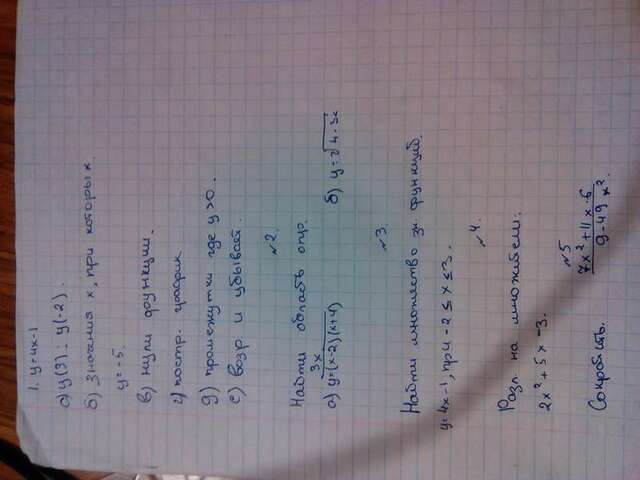 1. y=4x-1
а) y(3); y(-2).
б) значения x, при которых
y=-5.
в) нули функции.
г) постр. график
д) промежутки где y>0.
е) возр и убывает.
№2.
Найти область опр.
а) y=3x/(x-2)(x+4) б) y=√4-5x
№3.
Найти множество зн. функций.
y=4x-1, при -2≤x≤3.
№4.
Разл на множители:
2x²+5x-3.
№5
Сократить. 7x²+11x-6/9-49x²